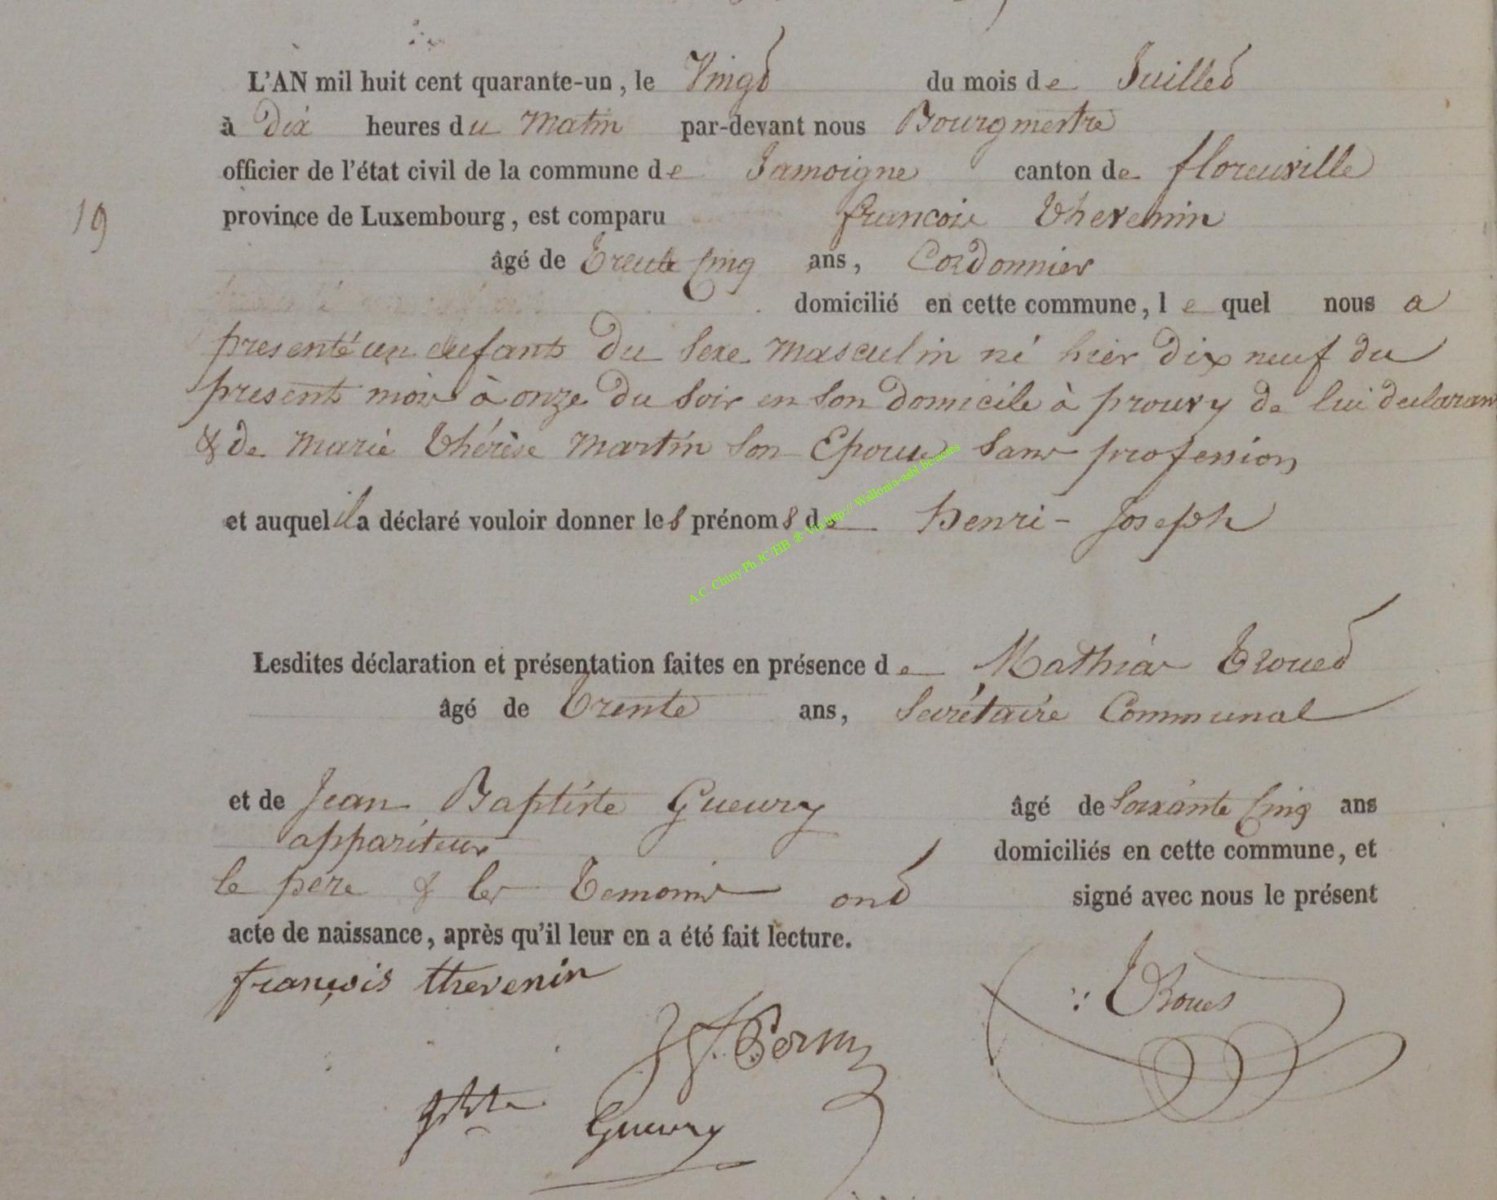 L'AN mil huit cent quarante-un, le Vingt du mois de Juillet
à Dix heures du Matin par-devant nous Bourgmestre
officier de l'état civil de la commune de Jamoigne canton de florenville
19
province de Luxembourg, est comparu francois Thevenin
âgé de Trente Cinq ans, Cordonnier
domicilié en cette commune, le quel nous a
presenté un enfant du sexe masculin né hier dix neuf du
present mois à onze du soir en son domicile à prouvy de lui declarant
& de Marie Thérèse Martin son Epouse sans profession
et auquel il a déclaré vouloir donner les prénoms de Henri - Joseph
A.C. Chiny Ph
Lesdites déclaration et présentation faites en présence de Mathias Trouet
âgé de Trente ans, Secrétaire Communal
et de Jean Baptiste Gueury âgé de Soixante Cinq ans
appariteur domiciliés en cette commune, et
le père & les Temoins ont signé avec nous le présent
acte de naissance, après qu'il leur en a été fait lecture.
françois thevenin
Trouet
Gueury